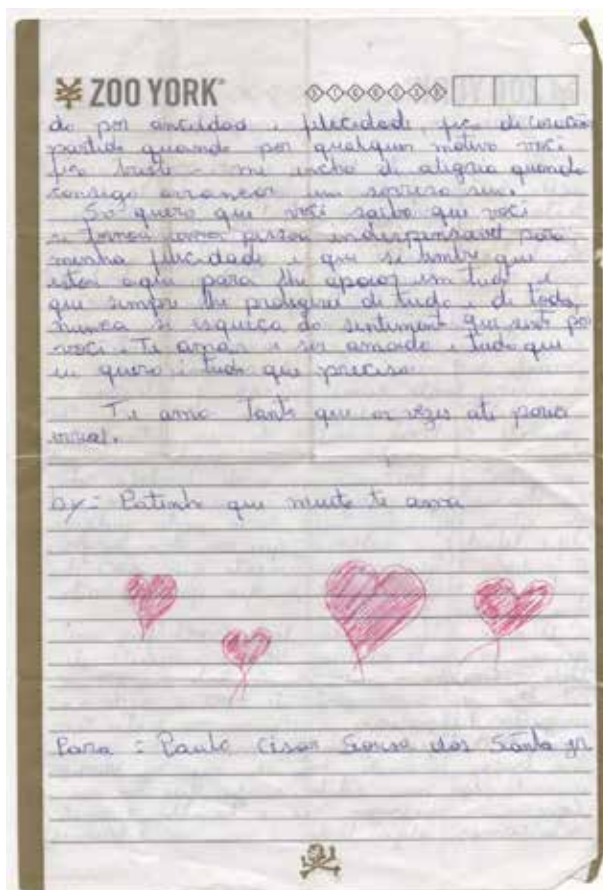 ZOO YORK
do por anciddad e felicidade, fico de coração
partido quando por qualquer motivo você
fica triste e me encho di aligria quando
consigo arrancar um sorriso seu.
So quero que você saiba que você
si tornou pessoa indispensavel para
minha felicidade e que si lembre que
estou aqui para lhe apoiar em tudo e
que sempre lhe protegerei di tudo e di todos,
nunca si esqueça do sentimento que sinto por
você. Te amar e ser amado e tudo que
eu quero e tudo que preciso.
Te amo tanto que as vezes ate pareci
by: que muito ti ama
Para: Paulo Cisar Sousa dos Santo jr